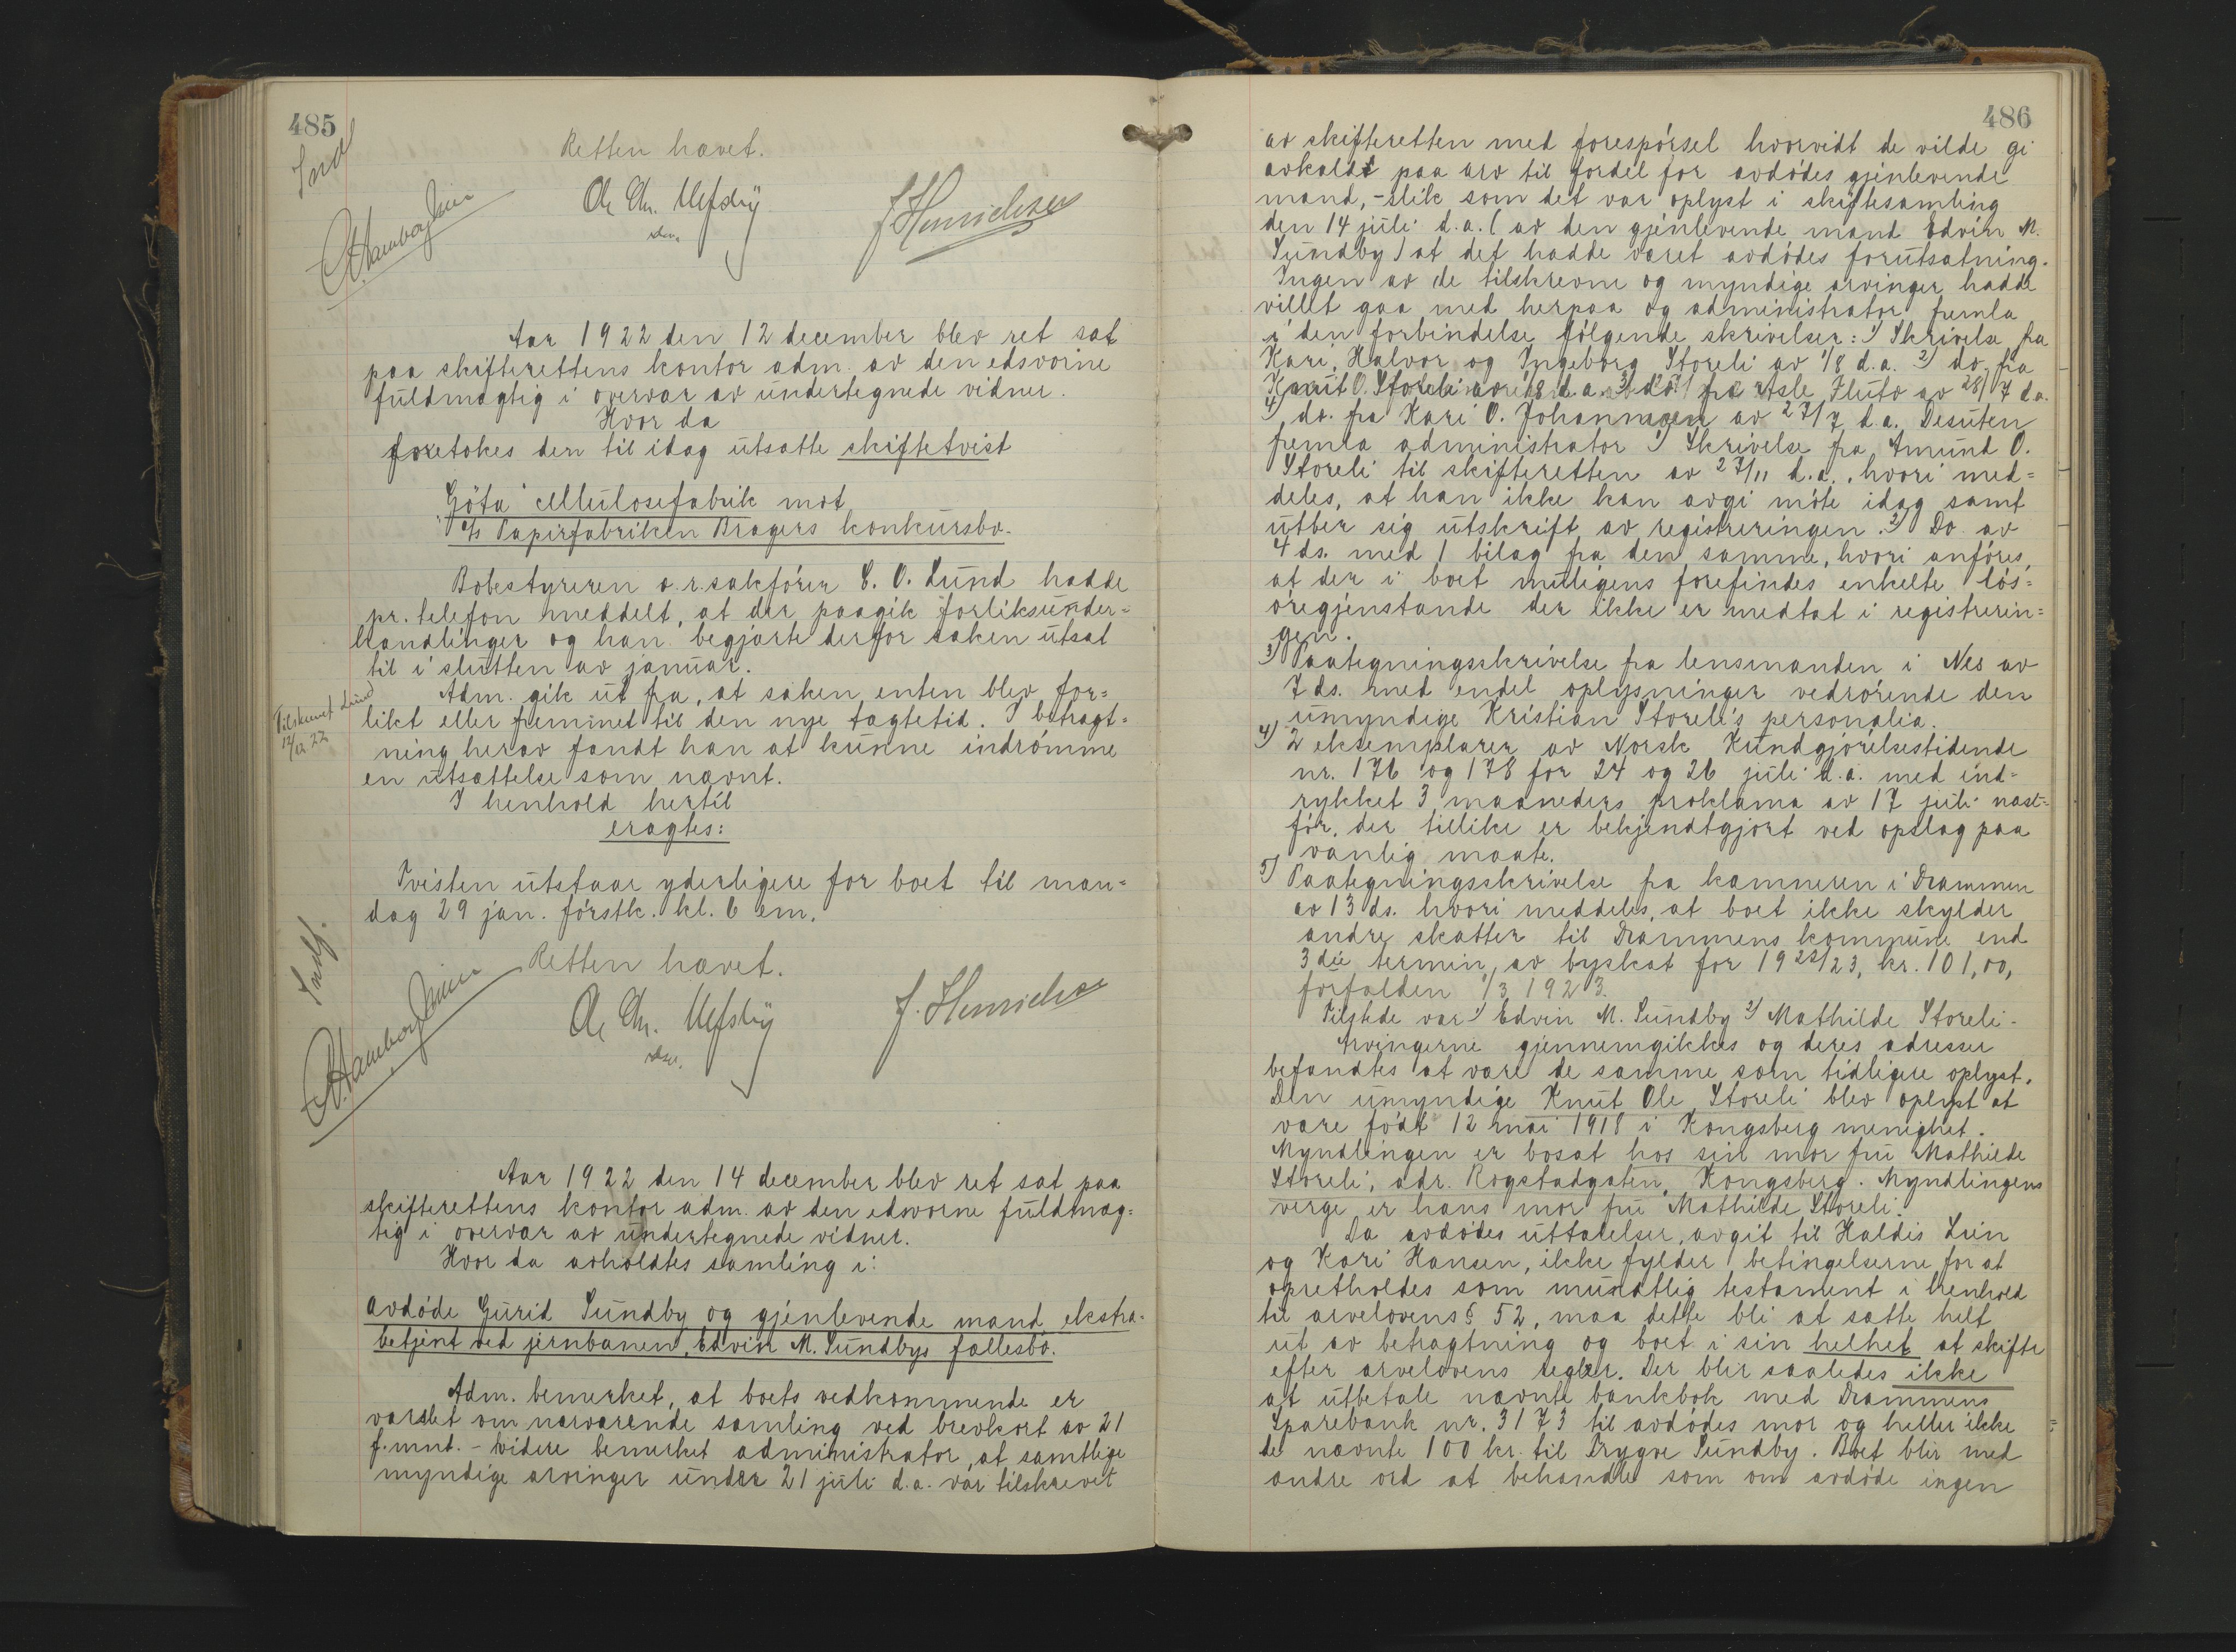 485
Retten hævet.
J. Henrichsen
Aar 1922 den 12 december blev ret sat
paa skifterettens kontor adm. av den edsvorne
fuldmægtig i overvær av undertegnede vidner.
Hvor da
foretokes den til idag utsatte skiftetvist
Göta cellulosefabrik mot
A/s Papirfabriken Bragers konkursbo.
Bobestyreren o.r.sakfører C. O. Lund hadde
pr. telefon meddelt, at der paagik forliksunder=
handlinger og han begjærte derfor saken utsat
til i slutten av januar.
Adm. gik ut fra, at saken enten blev for=
Tilskrevet Lund
12/12 22
likt eller fremmet til den nye tægtetid. I betragt=
ning herav fandt han at kunne indrømme
en utsættelse som nævnt.
I henhold hertil
eragtes:
Tvisten utstaar yderligere for boet til man=
dag 29 jan. førstk. kl. 6 em.
Indf.
Retten hævet.
J. Henrichsen
Aar 1922 den 14 december blev ret sat paa
skifterettens kontor adm. av den edsvorne fuldmæg=
tig i overvær av undertegnede vidner.
Hvor da avholdtes samling i:
avdøde Gurid Sundby og gjenlevende mand ekstra=
betjent ved jernbanen, Edvin M. Sundbys fællesbo.
Adm. bemerket, at boets vedkommende er
varslet om nærværende samling ved brevkort av 21
f. mnt. - Videre bemerket administrator, at samtlige
myndige arvinger under 21 juli d.a. var tilskrevet
486
av skifteretten med forespørsel hvorvidt de vilde gi
avkald paa arv til fordel for avdødes gjenlevende
mand, - slik som det var oplyst i skiftesamling
den 14 juli d.a. (av den gjenlevende mand Edvin M.
Sundby) at det hadde været avdødes forutsætning.
Ingen av de tilskrevne og myndige arvinger hadde
villet gaa med herpaa og administrator fremla
i den forbindelse følgende skrivelser: 1) Skrivelse fra
Kari, Halvor og Ingeborg Storeli av 1/8 d.a. 2) do. fra
Knut O. Storeli av 1/8 d.a. 3) do. fra Asle Fluto av 28/7 d.a.
4) do. fra Kari O. Johannesen av 27/7 d.a. Desuten
fremla administrator 1) Skrivelse fra Amund O.
Storeli til skifteretten av 27/11 d.a., hvori med=
deles, at han ikke kan avgi møte idag samt
utber sig utskrift av registreringen. 2) Do. av
4 ds. med 1 bilag fra den samme, hvori anføres,
at der i boet muligens forefindes enkelte løs=
øregjenstande der ikke er medtat i registrerin=
gen.
3) Paategningsskrivelse fra lensmanden i Nes av
7 ds. med endel oplysninger vedrørende den
umyndige Kristian Storeli's personalia.
4) 2 eksemplarer av Norsk Kundgjørelsestidende
nr. 176 og 178 for 24 og 26 juli d.a. med ind=
rykket 3 maaneders proklama av 17 juli næst=
før, der tillike er bekjendtgjort ved opslag paa
vanlig maate.
5) Paategningsskrivelse fra kæmneren i Drammen
av 13 ds. hvori meddeles, at boet ikke skylder
andre skatter til Drammens kommune end
3die termin av byskat for 1922/23, kr. 101,00,
forfalden 1/3 1923.
Tilstede var 1) Edvin M. Sundby 2) Mathilde Storeli.
Arvingerne gjennemgikkes og deres adresser
befandtes at være de samme som tidligere oplyst.
Den umyndige Knut Ole Storeli blev oplyst at
være født 12 mai 1918 i Kongsberg menighet.
Myndlingen er bosat hos sin mor fru Mathilde
Storeli, adr. Rogstadgaten, Kongsberg. Myndlingens
verge er hans mor fru Mathilde Storeli.
Da avdødes uttalelser, avgit til Haldis Lien
og Kari Hansen, ikke fylder betingelserne for at
opretholdes som mundtlig testament i henhold
til arvelovens § 52, maa dette bli at sætte helt
ut av betragtning og boet i sin helhet at skifte
efter arvelovens regler. Der blir saaledes ikke
at utbetale nævnte bankbok med Drammens
Sparebank nr. 3173 til avdødes mor og heller ikke
de nævnte 100 kr. til Trygve Sundby. Boet blir med
andre ord at behandle som om avdøde ingen